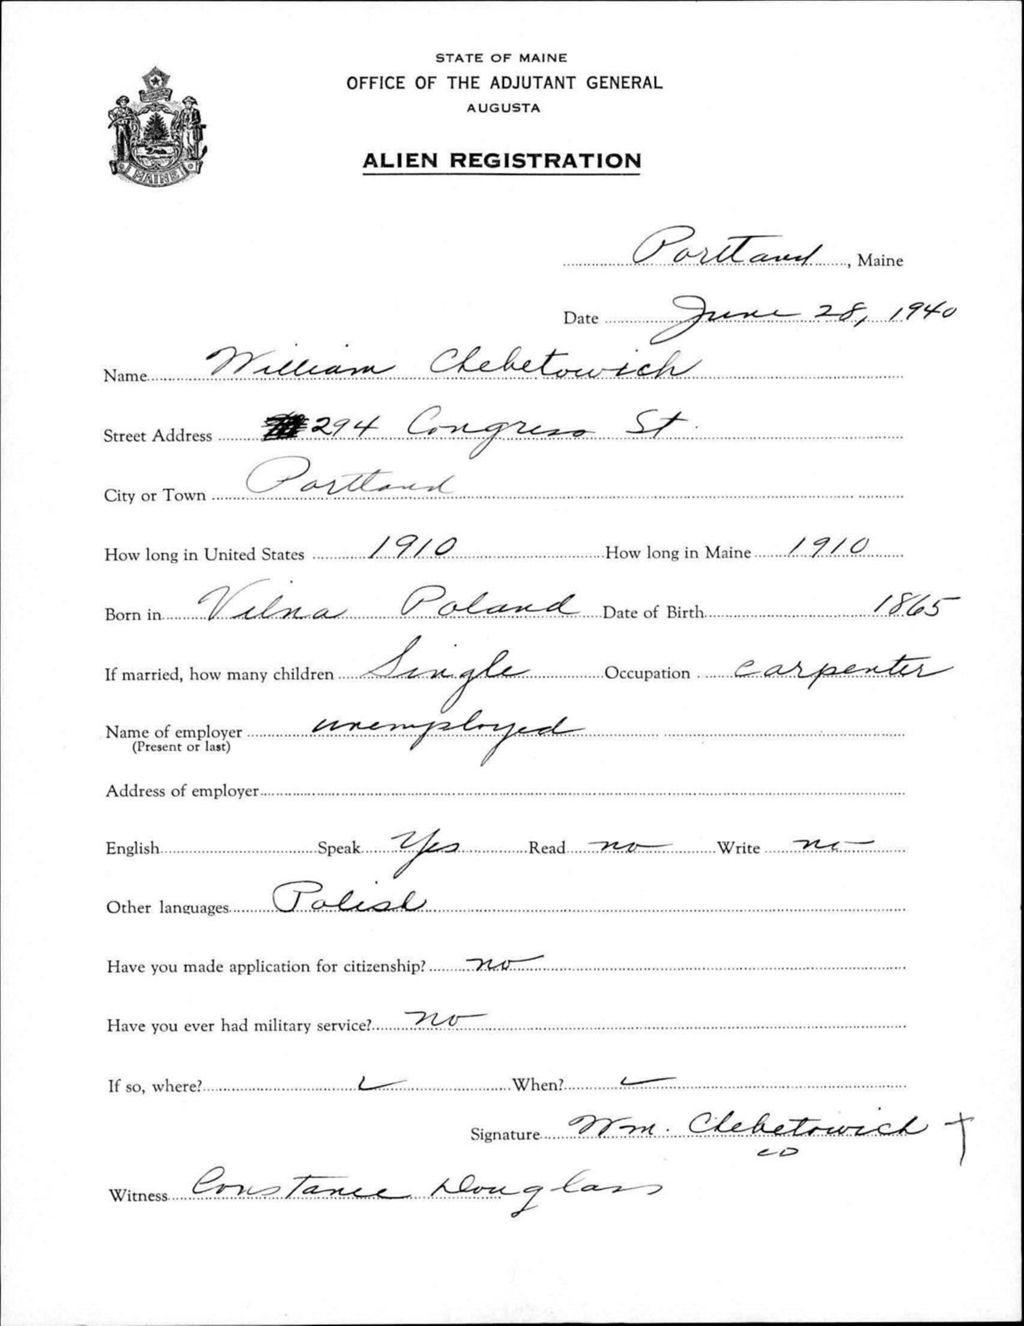 STATE OF MAINE
OFFICE OF THE ADJUTANT GENERAL
AUGUSTA
ALIEN REGISTRATION
MAINE
Portland, Maine
Date June 28, 1940
Name William Chebetowich
Street Address 294 Congress St.
City or Town Portland
How long in United States 1910 How long in Maine 1910
Born in Vilna Poland Date of Birth 1865
If married, how many children Single Occupation carpenter
Name of employer unemployed
(Present or last)
Address of employer
English Speak Yes Read no Write no
Other languages Polish
Have you made application for citizenship? no
Have you ever had military service? no
If so, where? When?
Signature Wm. Chebetowich
CD
Witness Constance Douglass